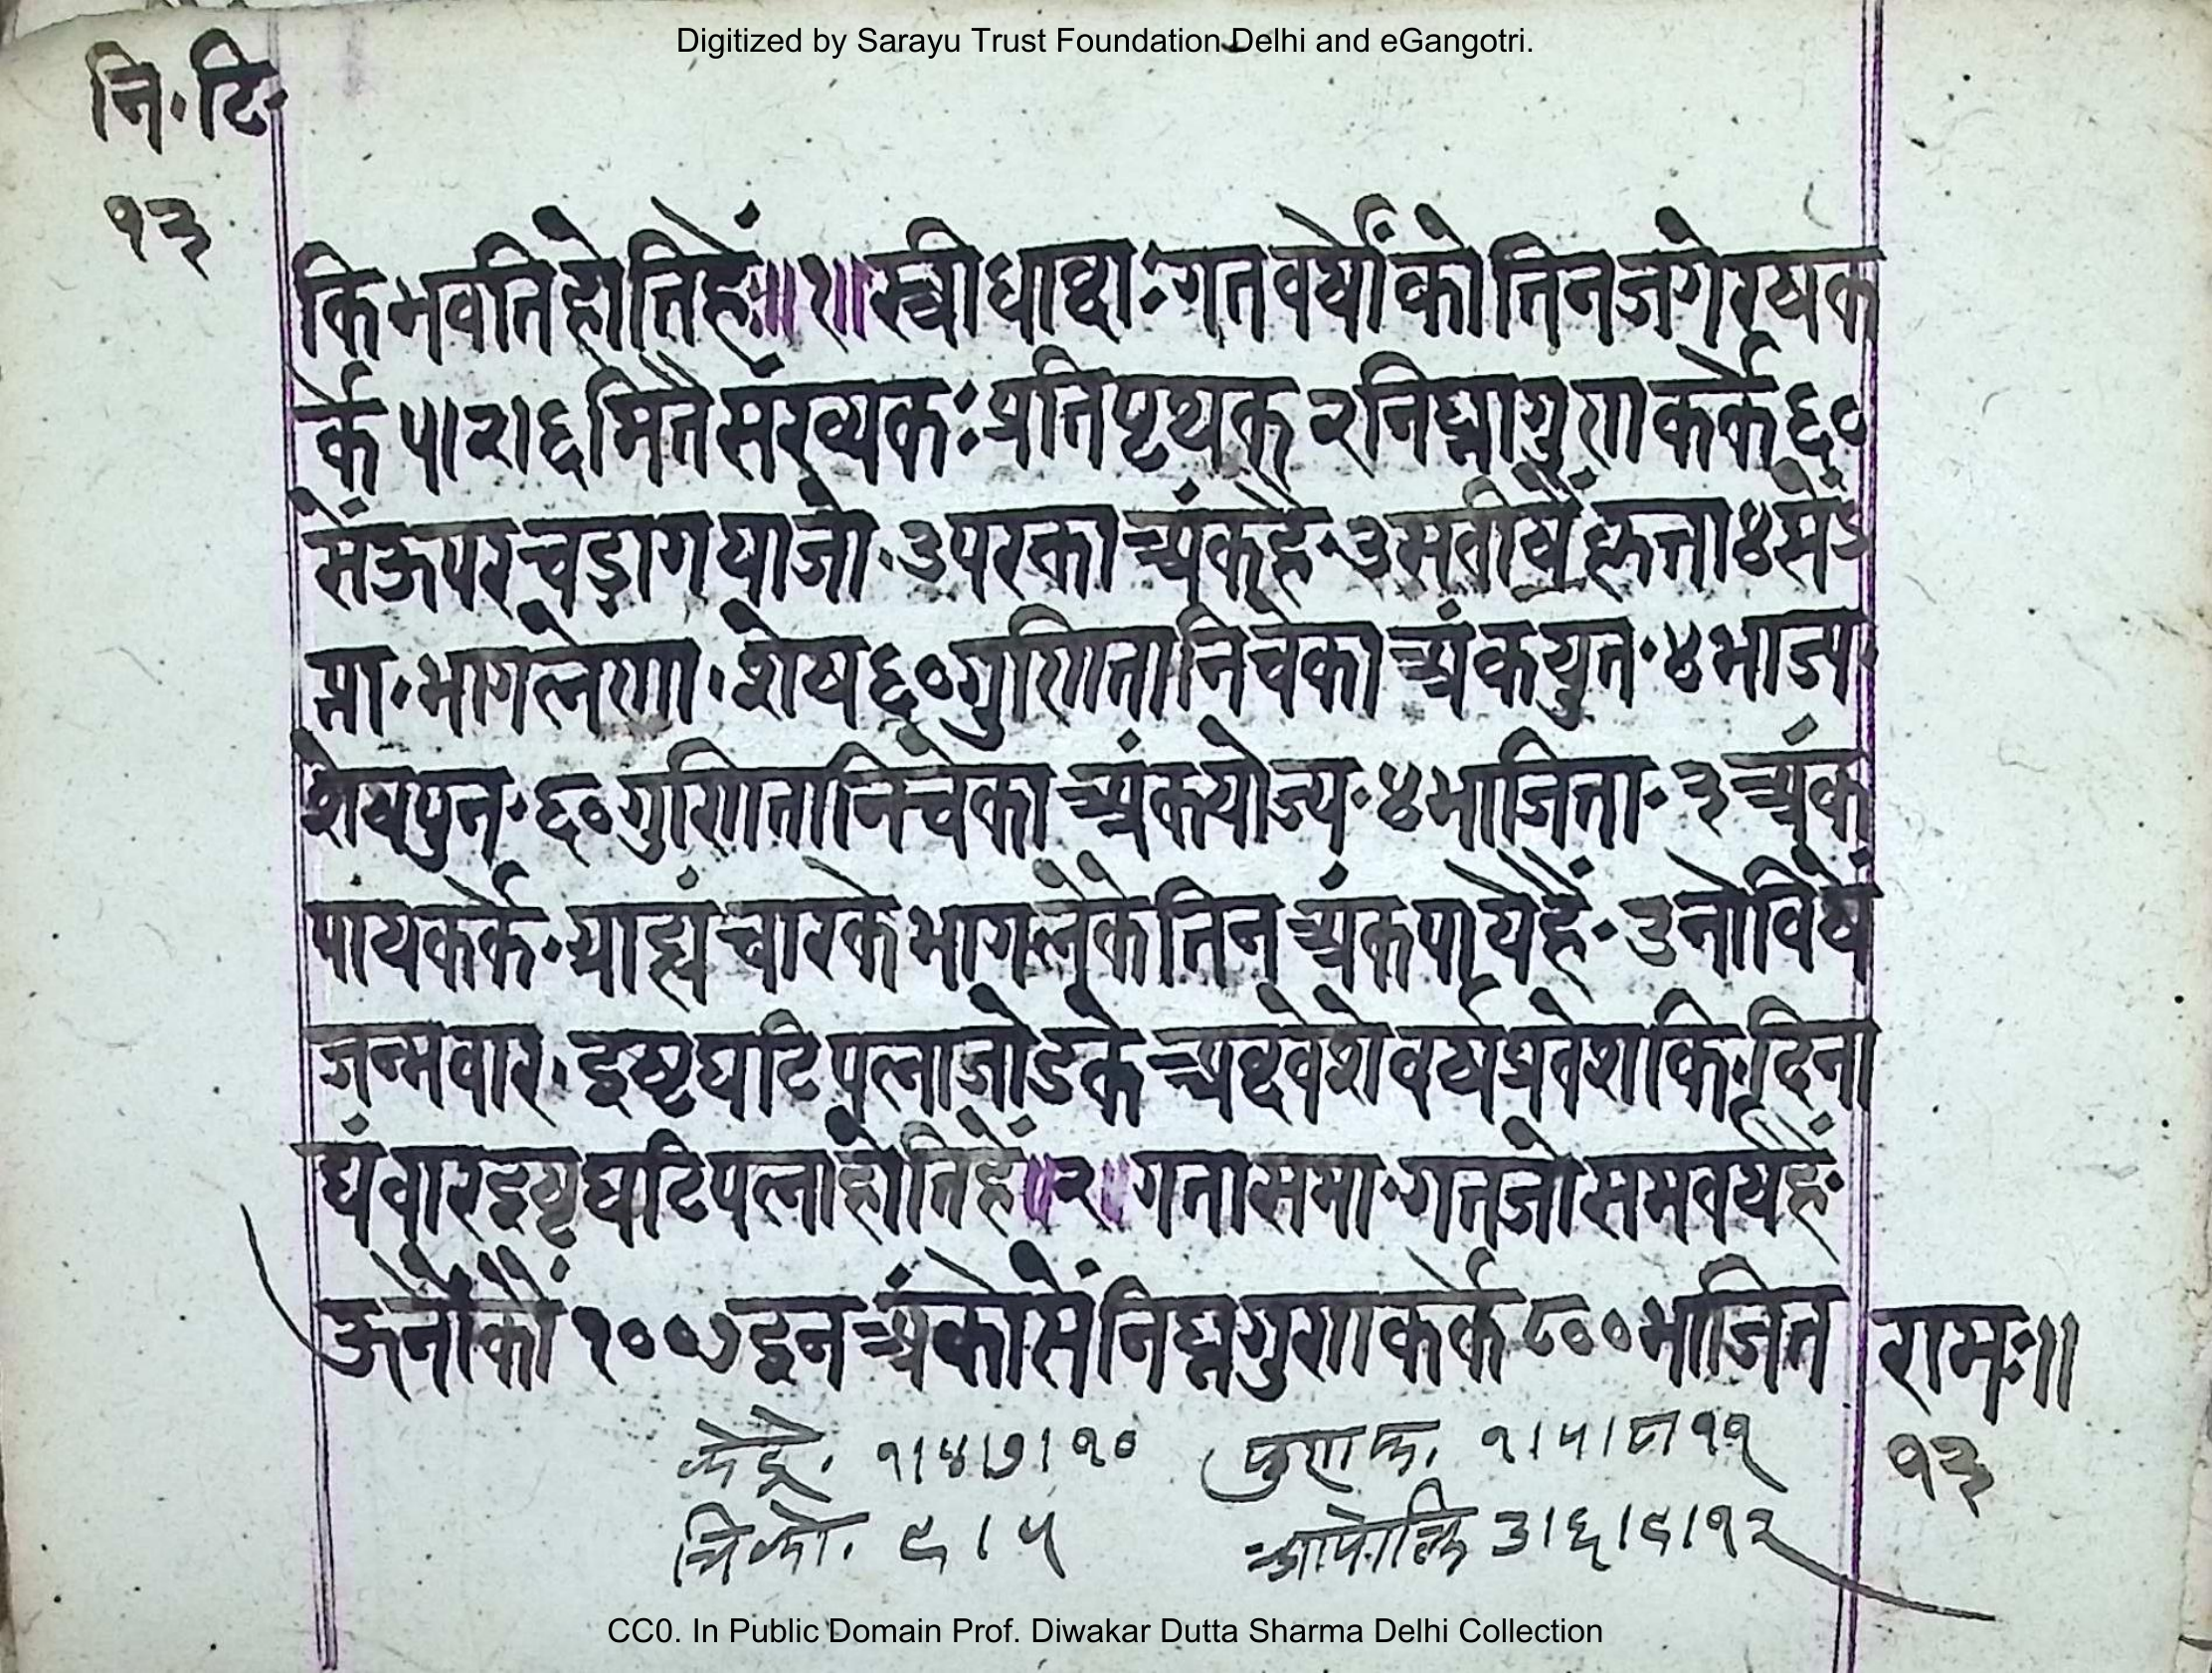 Digitized by Sarayu Trust Foundation Delhi and eGangotri.
नि॰टि॰
१३
कि भवति होतिहैं॥१॥स्वीधाब्दाःगतवर्षोंकोतिनजगेरष्यक
र्के५।२।६मितैसंख्यकःप्रतिपृथक्२निघ्नागुणाकर्के६०
सेंऊपरचड़ागयाजो॰उपरकाअंकहै॰
प्ता॰भागलेणा॰शेष६०गुणितानिचेकाअंकयुत॰४भाज्य
शेषपुन॰६०गुणितानिचेकाअंकयोज्य॰४भाजिता॰३अंक
पायकर्के॰ग्राह्यंचारकेभागलेकेतिनअंकपायेहैं॰उनोविषें
जन्मवार॰इष्टघटिपलाजोडकेअब्दवेशेवर्षप्रवेशकि॰दिना
द्यंवारइष्टघटिपलाहोतिहैं॥२॥गतासमा॰गतजोसमवर्षहैं॰
ऊनोंकों१००७इनअंकोसेंनिघ्नगुणाकर्के८००भाजित
रामः॥
१३
केंद्रे॰ १।४।७।१० २।५।८।११
त्रिको॰ ९।५ आपोक्लि ३।६।९।१२
CC0. In Public Domain Prof. Diwakar Dutta Sharma Delhi Collection